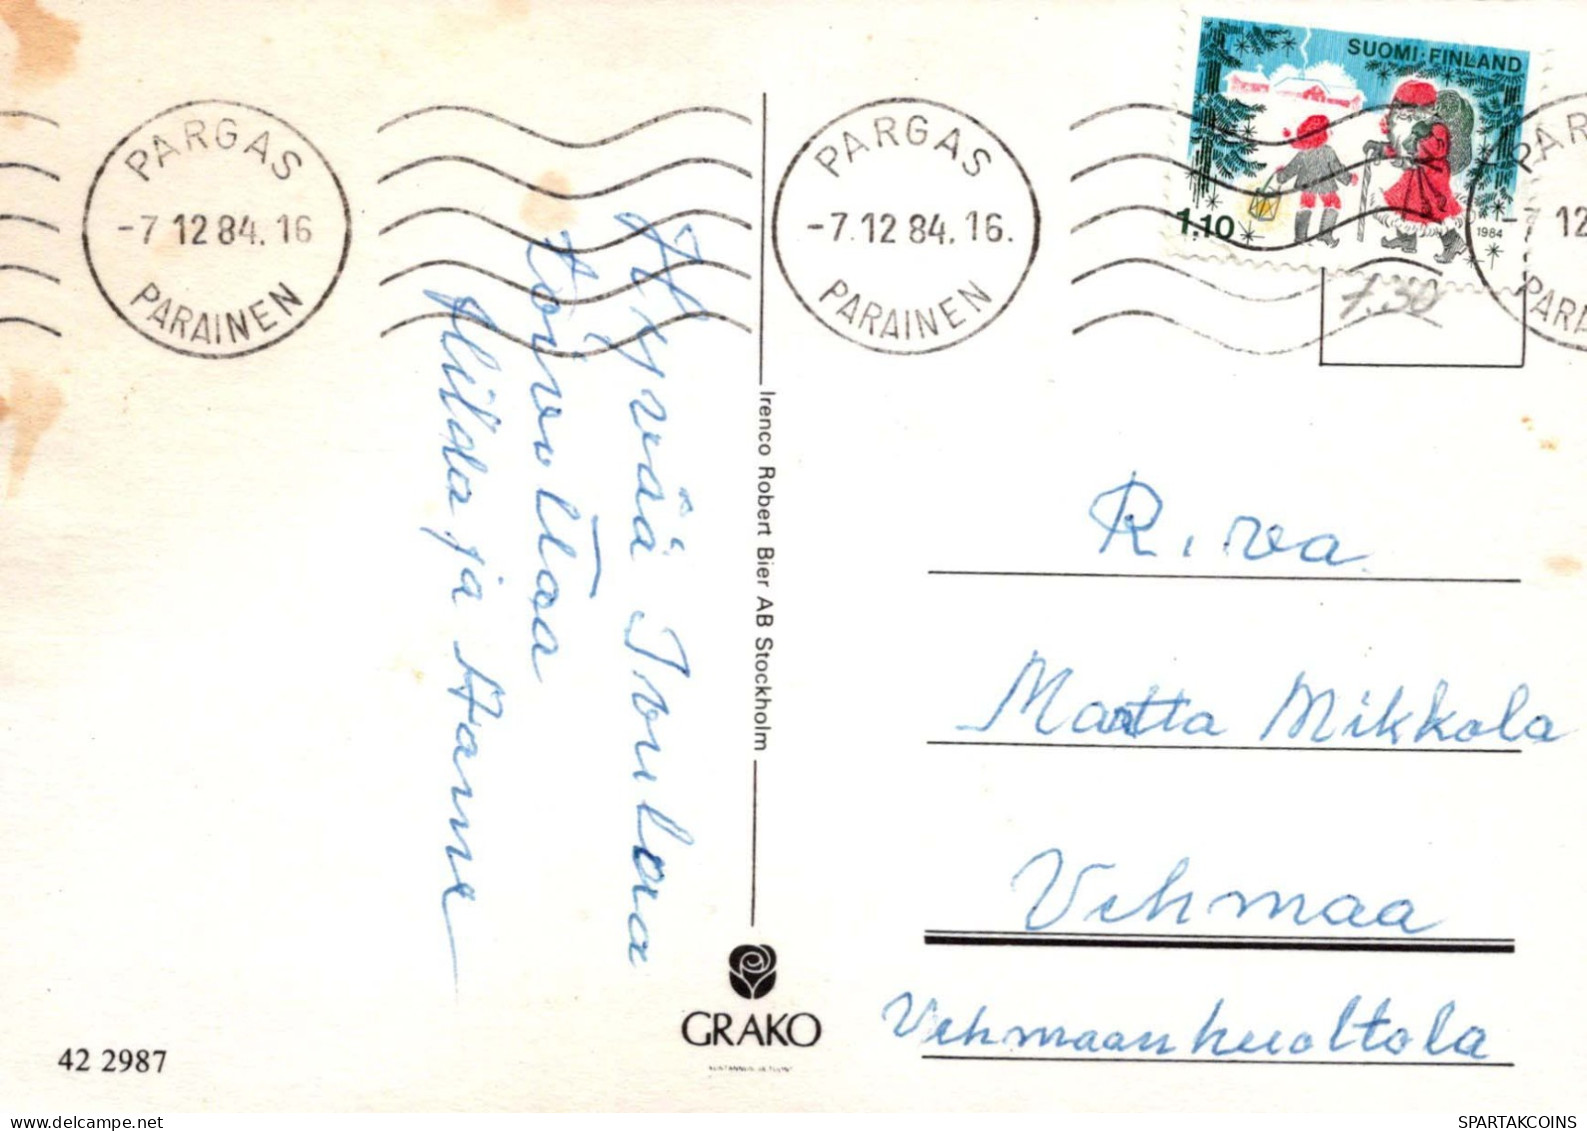 PARGAS
-7.12 84.16
PARAINEN
PARGAS
-7.12 84.16.
PARAINEN
SUOMI·FINLAND
1.10
1984
7.30
Hyvää Joulua
toivottaa
Hilda ja Hanne
Irenco Robert Bier AB Stockholm
R.va
Martta Mikkola
Vehmaa
Vehmaanhuoltola
GRAKO
42 2987
SPARTAKCOINS